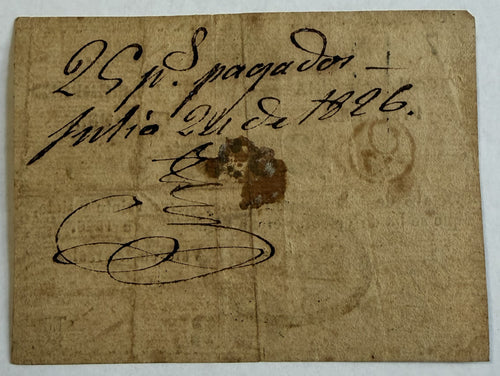 25 p.s pagados –
Julio 24 de 1826.